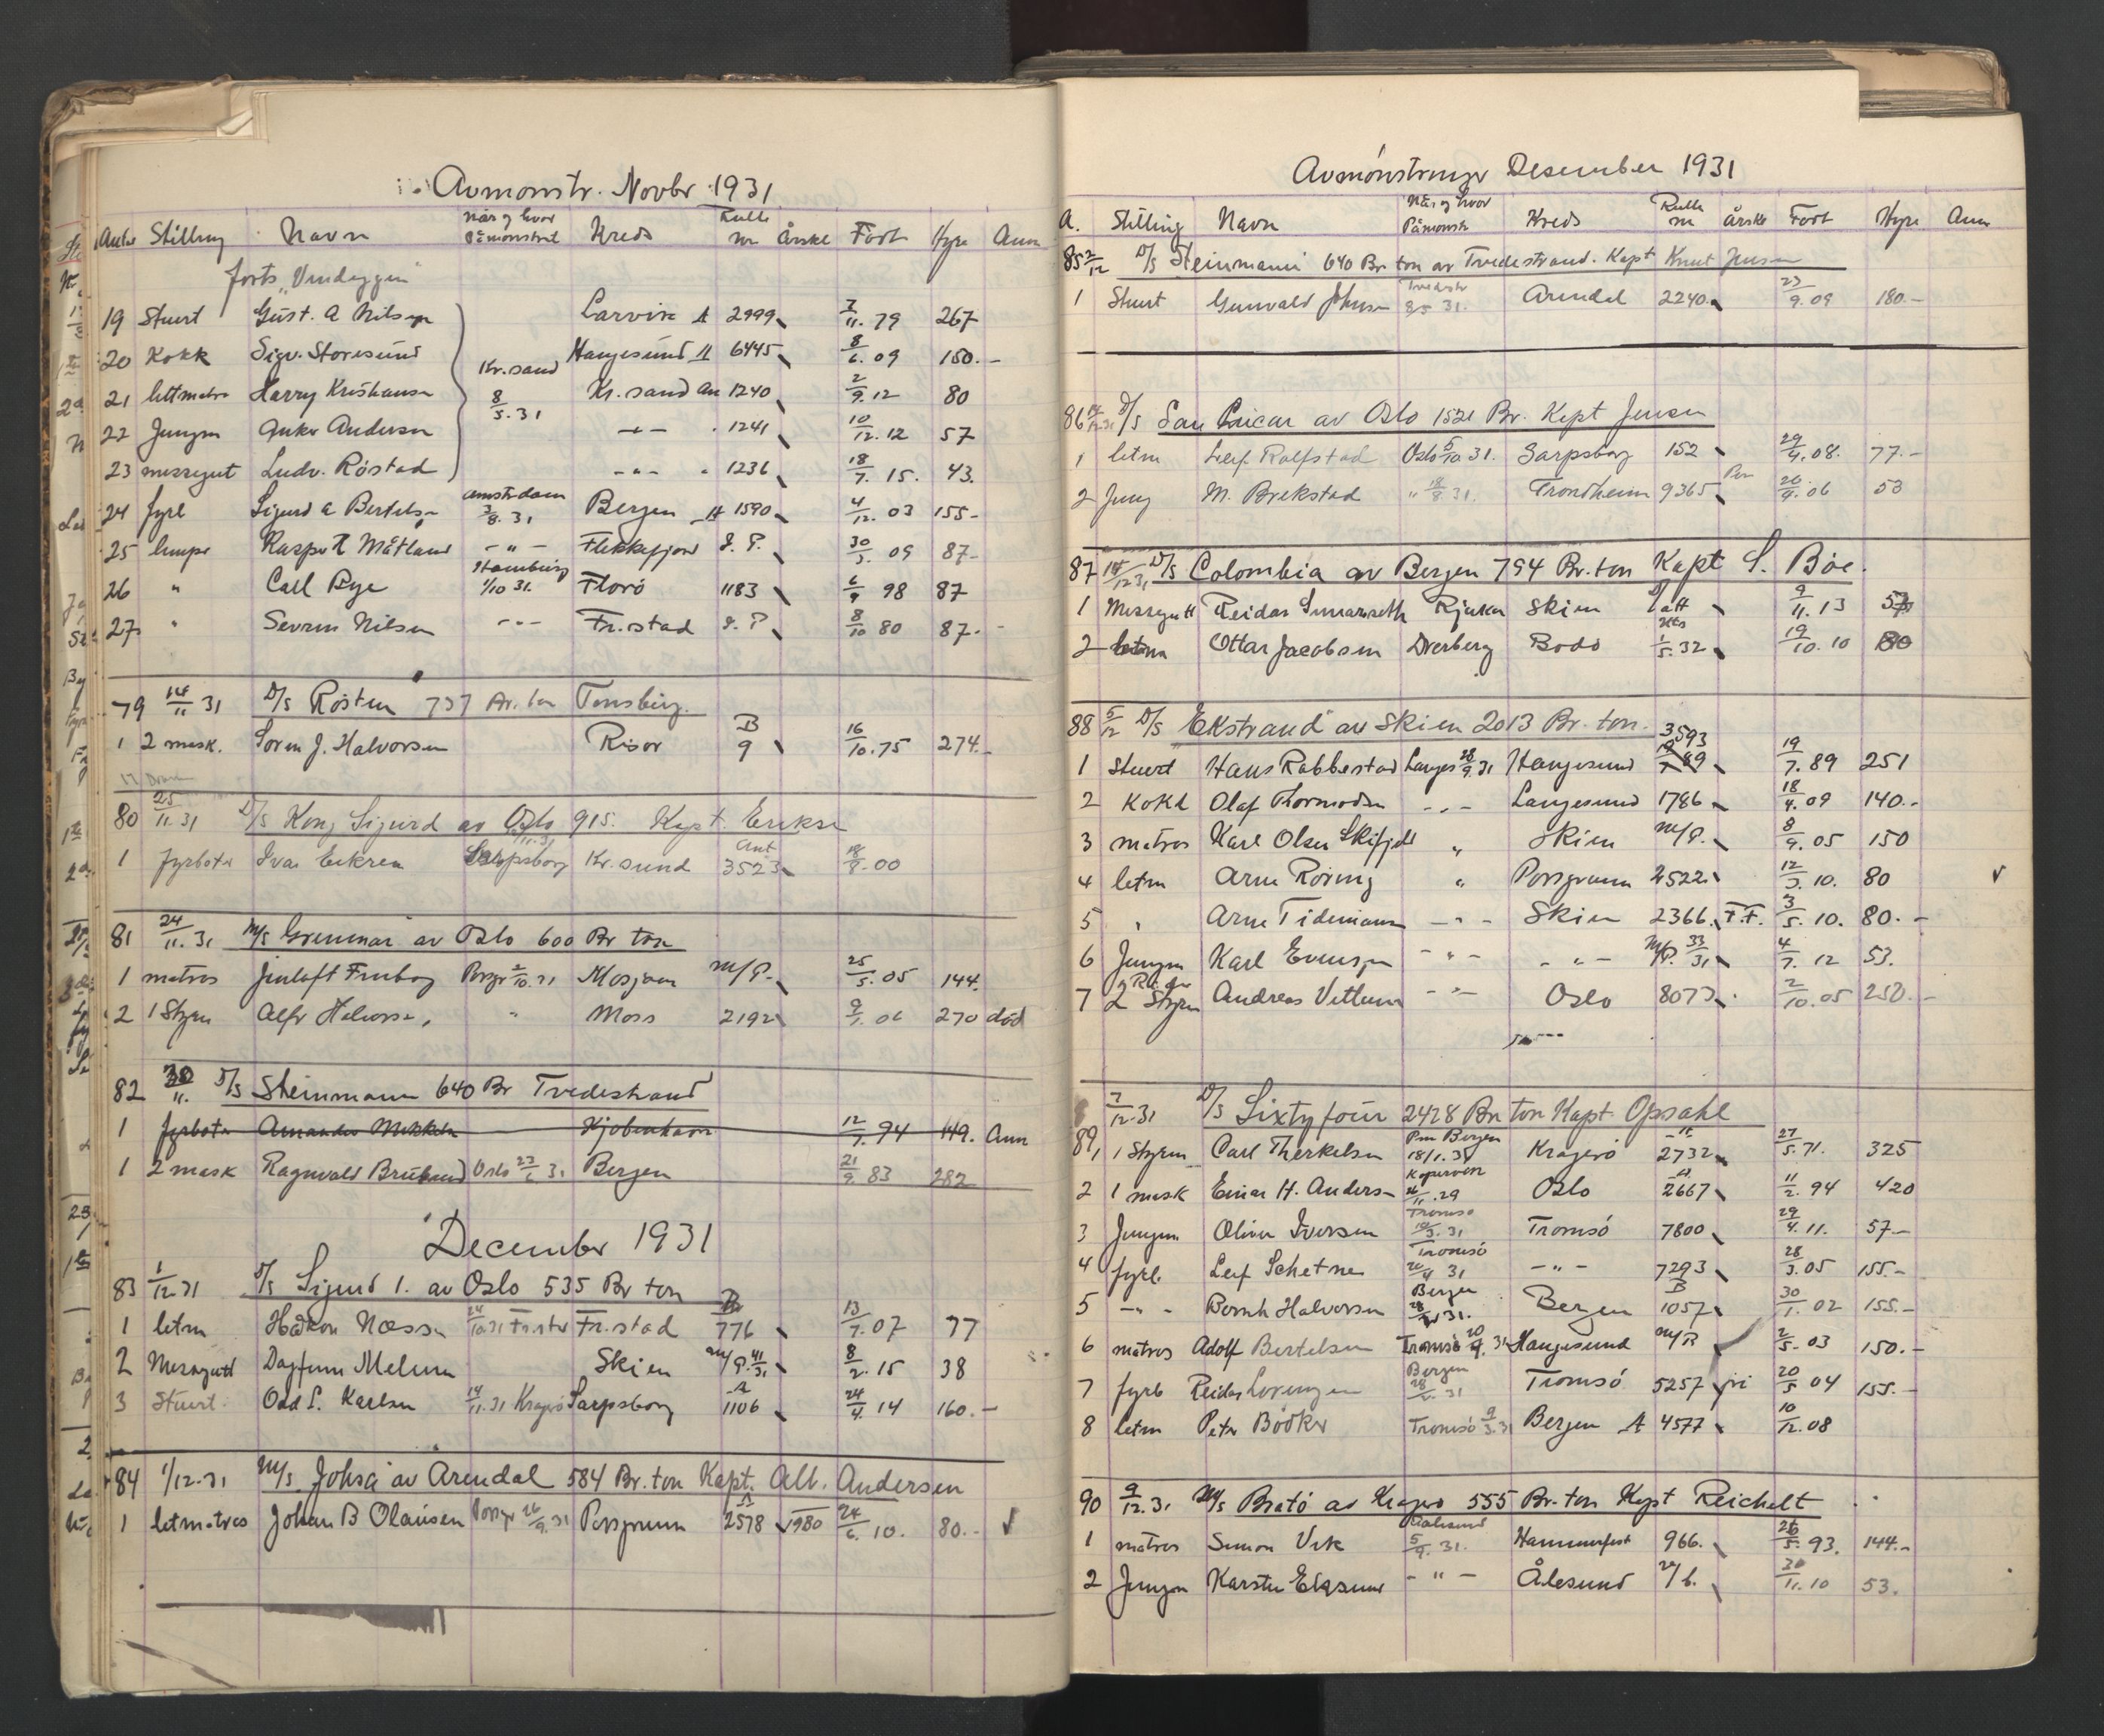 Avmönstr. Novbr. 1931
Antr Stilling Navn Når og hvor Påmönstret Kreds Rulle nr Årskl Födt Hyre Anm
forts. Vindeggen
19 Stuert Gust. A Nilsen Larvik A 2999 7/11. 79 267
20 Kokk Sigv. Storesund Haugesund A 6445 8/6. 09 150.-
21 lettmatr Harry Kristiansen Kr.sand 8/5.31 Kr.sand An 1240 2/9.12 80
22 Jungm Anker Andersen -"- 1241 10/12.12 57
23 messegut Ludv. Röstad -"- " 1236 18/7. 15. 43.
24 fyrb Sigurd A Bertelsen Amsterdam 3/8. 31 Bergen A 1590 4/12. 03 155-
25 lemper Kasper R Måtland -"- Flekkefjord I. P. 30/3. 09 87-
26 " Carl Bye Hamburg 1/10 31. Florö 1183 6/9 98 87
27 " Severin Nilsen -"- Fr.stad I. P 8/10 80 87.-
79 14/11 31 D/S Rösten 737 Br. ton Tönsberg.
1 2 mask. Soren J. Halvorsen Risör B 9 16/10.75 274.-
80 25/11.31 D/S Kong Sigurd av Oslo 915. Kapt. Eriksen
1 fyrböter Ivar Eikrem Sarpsborg Kr.sund Ant 3523 18/8.00
81 24/11. 31 M/S Grennmar av Oslo 600 Br ton
1 matros Porsgr 2/10. 31 Mosjöen M/P. 25/5.05 144.
2 1 Styrm Alfr Halvorsen " Moss 2192 9/1. 06 270 död
82 30/11. D/S Steinmann 640 Br Tvedestrand
1 fyrböter Amandus Mikkelsen Kjöbenhavn 12/7. 94 149. Ann
1 2 mask Ragnvald Oslo 23/6 31 Bergen 21/9. 83 282
December 1931
83 1/12-31 D/S Sigurd I. av Oslo 535 Br ton
1 letm Håkon Næssen 24/10.31 Fr.stad Fr.stad 776 13/7.07 77
2 Messegutt Dagfinn Melum Skien M/P. 41/31 8/2. 15 38
3 Stuert Odd S. Karlsen 14/11.31 Kragerö Sarpsborg A 1106 24/4. 14 160.-
84 1/12-31 M/S Johsa av Arendal 584 Br. ton Kapt. Alb. Andersen
1 letmatros Johan B Olaussen Porsgr 26/9.31 Porsgrunn A 2578 1930 24/6. 10. 80.-
Avmönstringer Desember 1931
A. Stilling Navn Når og hvor Påmönstr Kreds Rulle nr Årskl Födt Hyre Anm
85 2/12 D/S Steinmann 640 Br ton av Tvedestrand. Kapt Knut Jensen
1 Stuert Gunvald Johnsen Tvedestr 8/5 31. Arendal 2240 23/9. 09 180.-
86 D/S San Lucar av Oslo 1521 Br. Kapt Jensen
1 letm Leif Rolfstad Oslo 5/10 31. Sarpsborg 152 29/4.08. 77.-
2 Jung M. Brekstad " 18/8 31. Trondheim 9365 26/9. 06 53
87 14/12 31 D/S Colombia av Bergen 794 Br. ton Kapt S. Böe.
1 Messegutt Reidar Rjukan Skien att 9/11. 13 53
2 letm Ottar Jacobsen Dverberg Bodö 1/5. 32 19/10. 10 80
88 5/12 D/S Ekstrand av Skien 2013 Br. ton.
1 Stuert Hans Rabbestad Langes 28/9. 31 Haugesund 3593 19/7. 89 251
2 Kokk Olaf Thormodsen -"- Langesund 1786 18/4. 09 140.-
3 matros Karl Olsen Skifjeld " Skien M/P. 8/9. 05 150
4 letm Arne Röring " Porsgrunn 2522 12/3. 10. 80
5 " Arne Tidemann -"- Skien 2366 F.F. 3/5. 10. 80.-
6 Jungm Karl Evensen -"- -"- M/P. 33/31 4/7. 12 53.
7 2 Styrm Andreas Vettum -"- Oslo 8073 2/10.05 250.-
89 7/12.31 D/S Sixtyfour 2428 Br ton Kapt. Opsahl
1 1 Styrm Carl Therkelsen Bergen 18/1. 31 Kragerö 2732 27/5. 71. 325
2 1 mask Einar H. Andersen Kopervik 26/11.29 Oslo A 2667 11/2. 94 420
3 Jungm Oliver Iversen Tromsö 10/3. 31 Tromsö 7800 29/4. 11. 57-
4 fyrb. Leif Schetne Tromsö 20/4 31 -"- 7293 28/3.05 155.-
5 -"- Bernh Halvorsen Bergen Bergen B 1057 30/1. 02 155.-
6 matros Adolf Bertelsen Tromsö 20/9. 31 Haugesund M/P 2/5. 03 150.-
7 fyrb Reidar Lorenzen Bergen Tromsö 5257 20/5 04 155.-
8 letm Peter Bödker Tromsö 9/3.31 Bergen A 4577 10/12.08
90 9/12.31 M/S Bratö av Kragerö 555 Br. ton Kapt Reichelt
1 matros Simon Vik Aalesund 5/9. 31. Hammerfest 966. 26/5. 93. 144.-
2 Jungm Karsten -"- Ålesund 30/11.10 53.